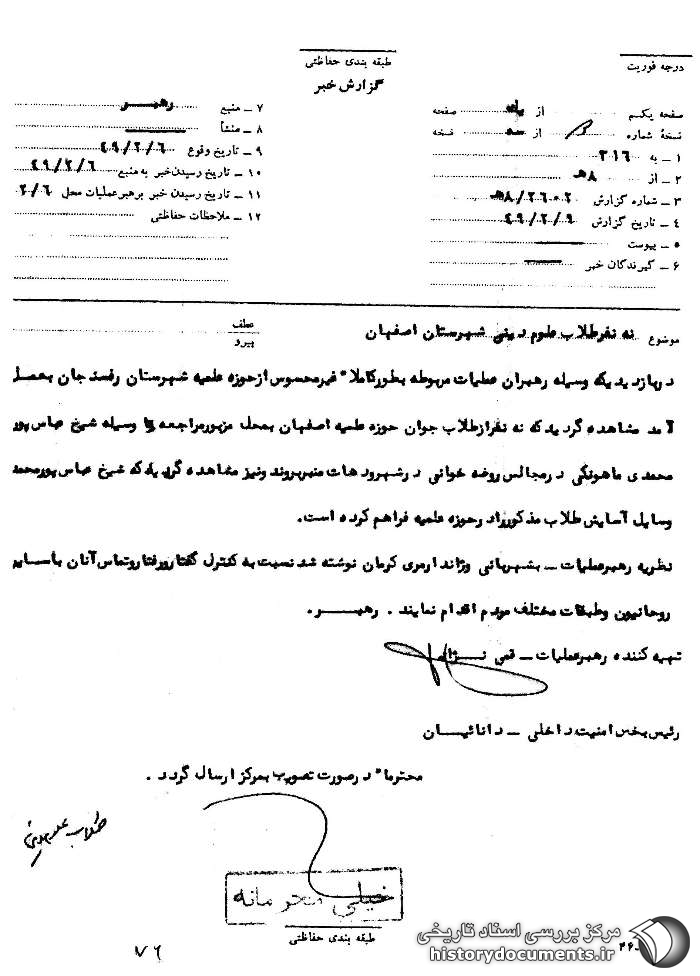 طبقه بندی حفاظتی
گزارش خبر
درجه فوریت
صفحه یکم از یک صفحه
نسخهٔ شماره از سه نسخه
۱ ـ به ۳۱۶
۲ ـ از ۸هـ
۳ ـ شماره گزارش ۲۶۰۲/۸هـ
۴ ـ تاریخ گزارش ۴۹/۲/۹
۵ ـ پیوست
۶ ـ گیرندگان خبر
۷ ـ منبع رهبر
۸ ـ منشأ
۹ ـ تاریخ وقوع ۴۹/۲/۶
۱۰ ـ تاریخ رسیدن خبر به منبع ۴۹/۲/۶
۱۱ ـ تاریخ رسیدن خبر برهبر عملیات محل ۲/۶
۱۲ ـ ملاحظات حفاظتی
موضوع نه نفر طلاب علوم دینی شهرستان اصفهان
عطف
پیرو
در بازدیدیکه وسیله رهبران عملیات مربوطه بطور کاملاً غیر محسوس از حوزه علمیه شهرستان رفسنجان بعمل
آمد مشاهده گردید که نه نفر از طلاب جوان حوزه علمیه اصفهان بمحل مزبور مراجعه و وسیله شیخ عباس پور
محمدی ماهونکی در مجالس روضه خوانی در شهر و دهات منبر بروند و نیز مشاهده گردید که شیخ عباس پورمحمد
وسایل آسایش طلاب مذکور را در حوزه علمیه فراهم کرده است.
نظریه رهبر عملیات ـ بشهربانی و ژاندارمری کرمان نوشته شد نسبت به کنترل گفتار و رفتار و تماس آنان با سایر
روحانیون و طبقات مختلف مردم اقدام نمایند . رهبـــر .
تهیه کننده رهبر عملیات ـ قمی نـــژاد
رئیس بخش امنیت داخلی ـ دانائیـــان
محترماً در صورت تصویب بمرکز ارسال گردد .
طلاب علوم دینی
خیلی محرمانه
طبقه بندی حفاظتی
۷۶
۳۶
مرکز بررسی اسناد تاریخی
historydocuments.ir